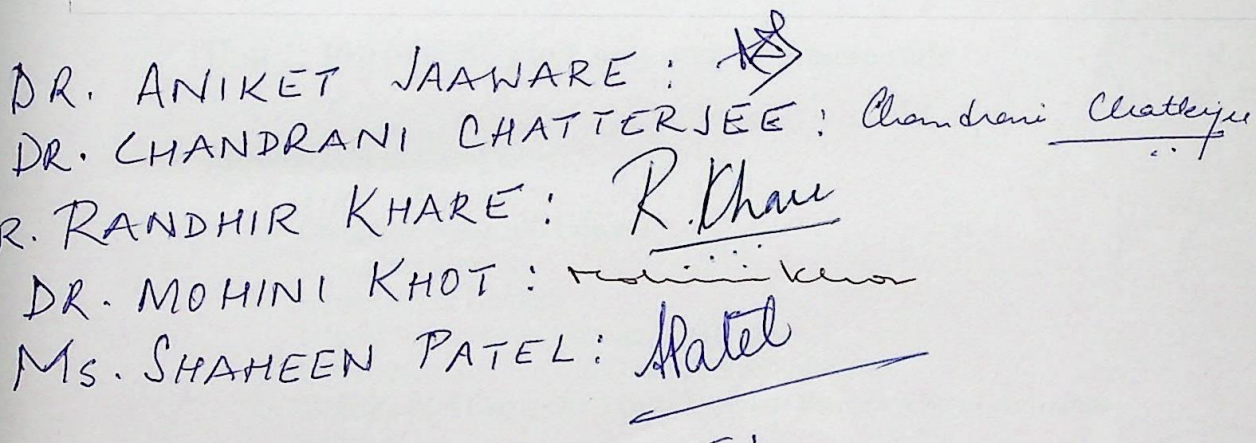 DR. ANIKET JAAWARE :
DR. CHANDRANI CHATTERJEE : Chandrani Chatterjee
R. RANDHIR KHARE : R. Khare
DR. MOHINI KHOT : Mohini Khot
Ms. SHAHEEN PATEL : SPatel